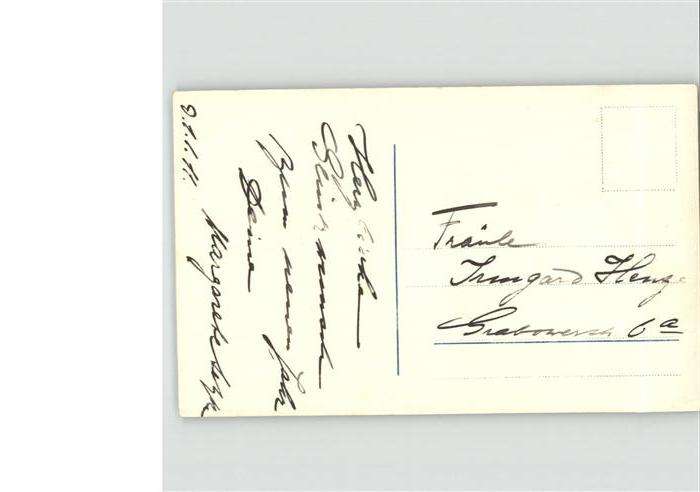 Herzliche
Glückwunsch
zum neuen Jahr
Deine
Margarete
Fräule
Irmgard Henze
Grabowerstr 6a